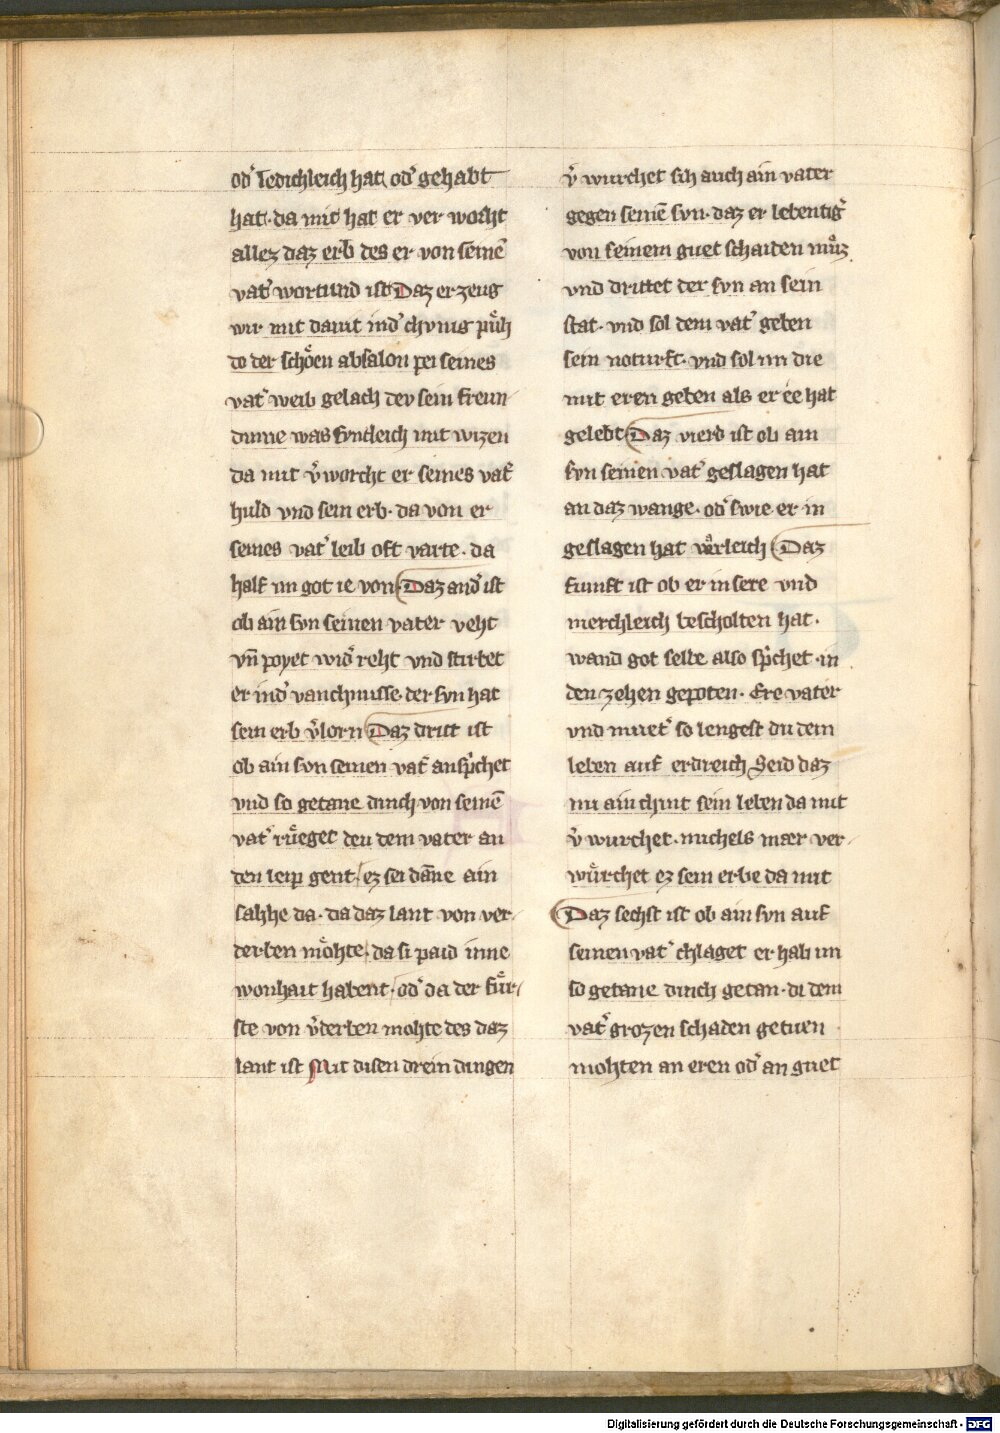 od᾿ ledichleich hat od᾿ gehabt
hat· da mit hat er ver worht
allez daz erb des er von seinē
vat᾿ wortund ist Daz erzeug
wir mit dauit in d᾿ chvnig pu̍h
do der schoͤen absalon pei seines
vat᾿ weib gelach dev sein freun
dinne was suntleich mit wizen
da mit v᾿worcht er seines vat᾿
huld vnd sein erb· da von er
seines vat᾿ leib oft varte· da
half im got ie von· Daz and᾿ ist
ob ain svn seinen vater veht
vn̄ poyet wid᾿ reht vnd stirbet
er in d᾿ vanchnusse· der svn hat
sein erb v᾿lorn Daz dritt ist
ob ain svn seinen vat᾿ ansp᾿chet
vnd so getane dinch von seinē
vat᾿ ruͤeget deu dem vater an
den leip gent· ez sei dāne ain
sahhe da· da daz lant von ver
derben moͤhte· da si paid inne
wonhait habent· od᾿ da der fuͤr
ste von v᾿derben mohte des daz
lant ist Mit disen drein dingen
v᾿wurchet sich auch ain vater
gegen seinē svn· daz er lebentig᾿
von seinem guet schaiden muͦz
vnd drittet der svn an sein
stat· vnd sol dem vat᾿ geben
sein noturft· vnd sol im die
mit eren geben als er ee hat
gelebt Daz vierd ist ob ain
svn seinen vat᾿ geslagen hat
an daz wange· od᾿ swie er in
geslagen hat Daz
funft ist ob er in sere vnd
merchleich bescholten hat·
wand got selbe also sp᾿chet· in
den zehen gepoten· Ere vater
vnd muet᾿ so lengest du dem
leben auf erdreich Seid daz
nu ain chint sein leben da mit
v᾿wurchet· michels mær ver
wuͤrchet ez sein erbe da mit
Daz sechst ist ob ain svn auf
seinen vat᾿ chlaget er hab im
so getane dinch getan· di dem
vat᾿ grozen schaden getuen
mohten an eren od᾿ an guet
Digitalisierung gefördert durch die Deutsche Forschungsgemeinschaft - DFG